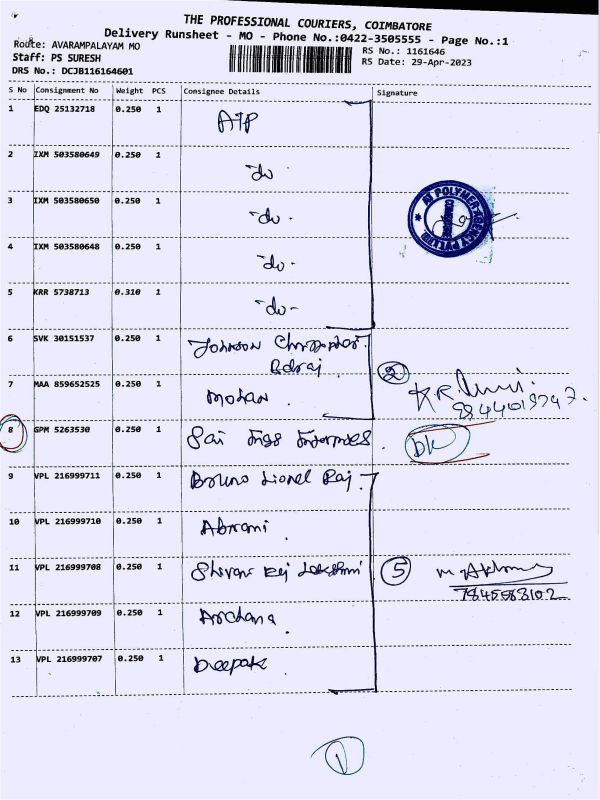 THE PROFESSIONAL COURIERS, COIMBATORE
Delivery Runsheet - MO - Phone No.:0422-3505555 - Page No.:1
Route: AVARAMPALAYAM MO
RS No.: 1161646
Staff: PS SURESH
RS Date: 29-Apr-2023
DRS No.: DCJB116164601
S No Consignment No Weight PCS Consignee Details Signature
1 EDQ 25132718 0.250 1 AJP
2 IXM 503580649 0.250 1 -do-
3 IXM 503580650 0.250 1 -do-
4 IXM 503580648 0.250 1 -do-
AJ POLYMER AGENCY PVT LTD
5 KRR 5738713 0.310 1 -do-
6 SVK 30151537 0.250 1 Johnson
2
7 MAA 859652525 0.250 1 Mohan
K.R.
8 GPM 5263530 0.250 1 Sai Engg Enterprises
DK
9 VPL 216999711 0.250 1 Bruno Lionel Raj
10 VPL 216999710 0.250 1 Abirami
11 VPL 216999708 0.250 1 Lakshmi
5
12 VPL 216999709 0.250 1 Archana
13 VPL 216999707 0.250 1 Deepak
1